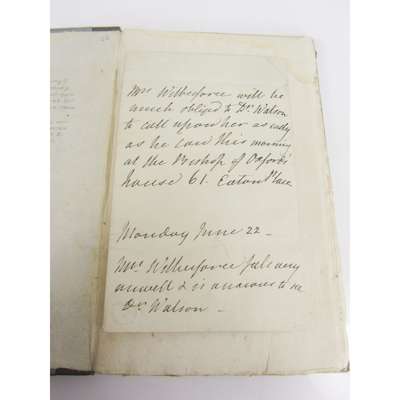 Mrs Wilberforce will be
much obliged to Dr. Watson
to call upon her as early
as he can this morning
at the Bishop of Oxford's
house 61. Eaton Place
Monday June 22 -
Mrs. Wilberforce feels very
unwell & is anxious to see
Dr. Watson -